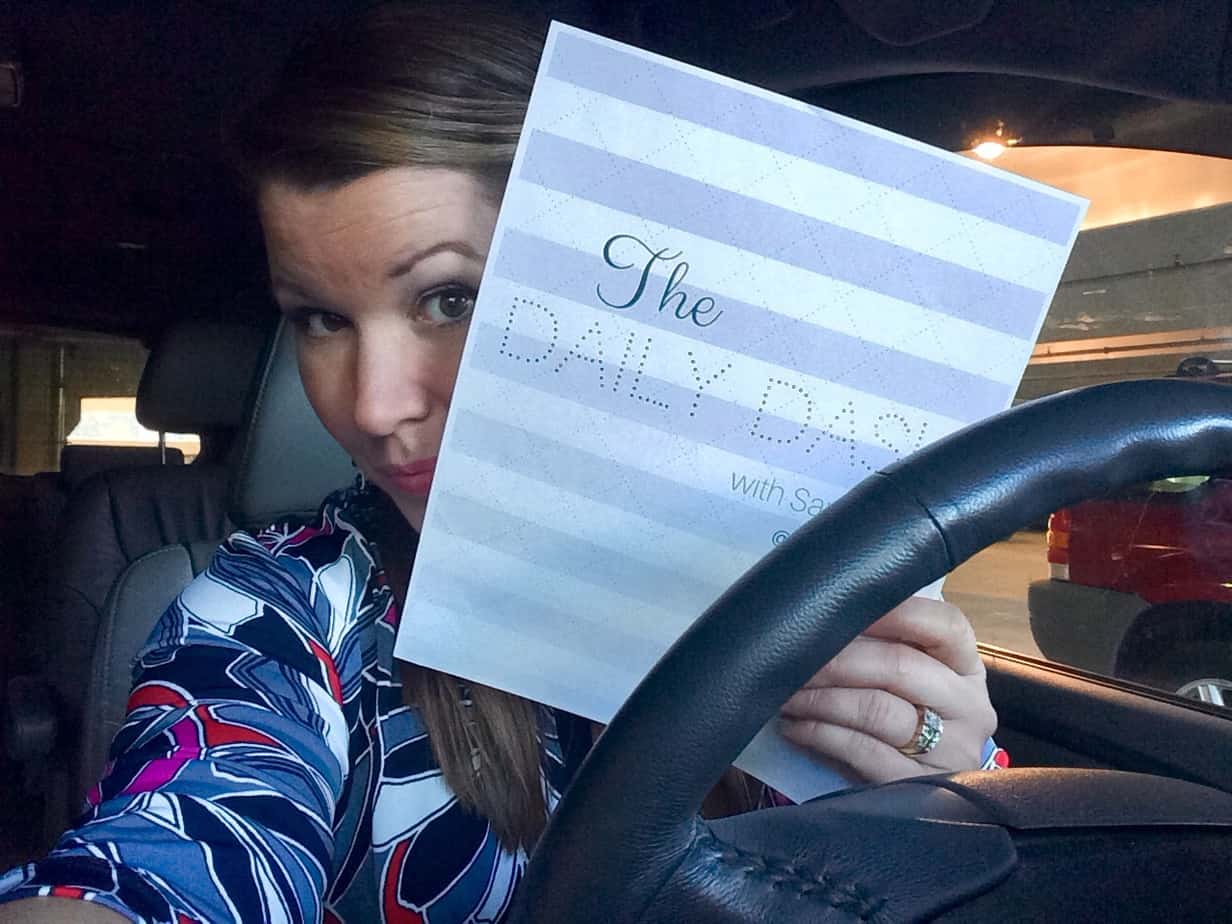 The
DAILY DAS
with Sa
©